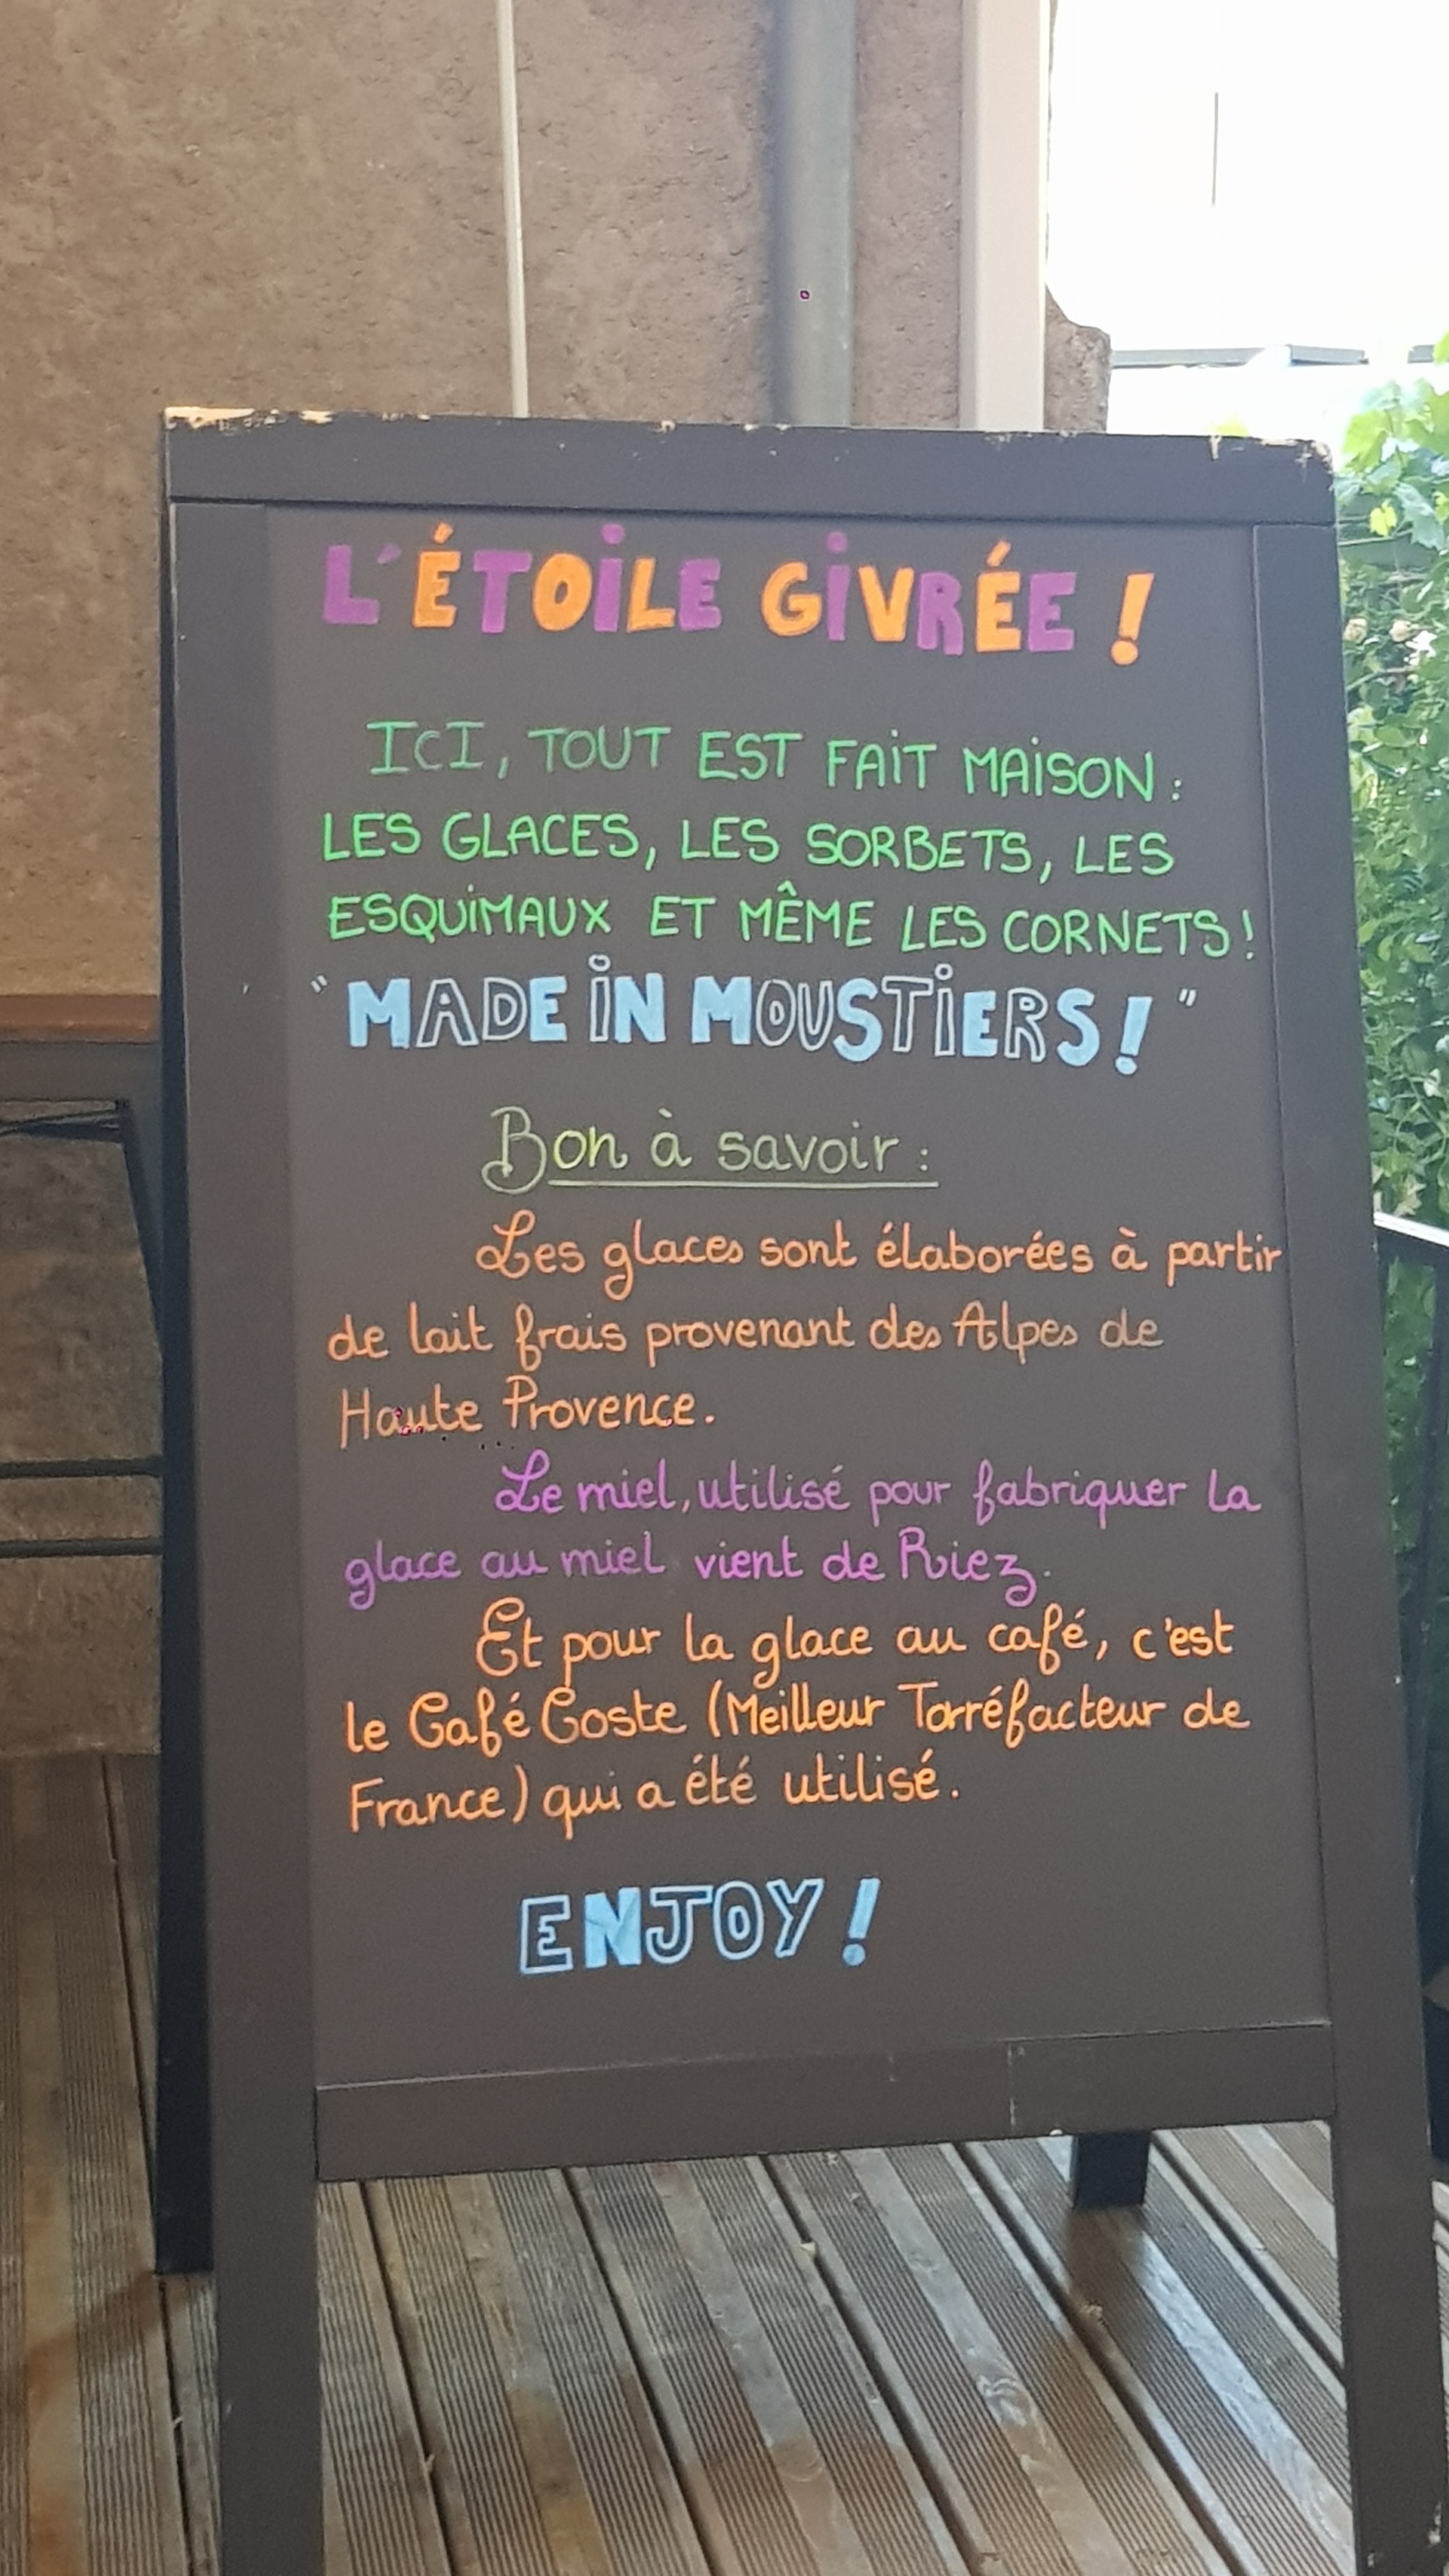 L'ÉTOILE GIVRÉE !
ICI, TOUT EST FAIT MAISON :
LES GLACES, LES SORBETS, LES
ESQUIMAUX ET MÊME LES CORNETS !
"MADE IN MOUSTIERS ! "
Bon à savoir :
Les glaces sont élaborées à partir
de lait frais provenant des Alpes de
Haute Provence.
Le miel, utilisé pour fabriquer la
glace au miel vient de Riez.
Et pour la glace au café, c'est
le Café Coste (Meilleur Torréfacteur de
France) qui a été utilisé.
ENJOY !